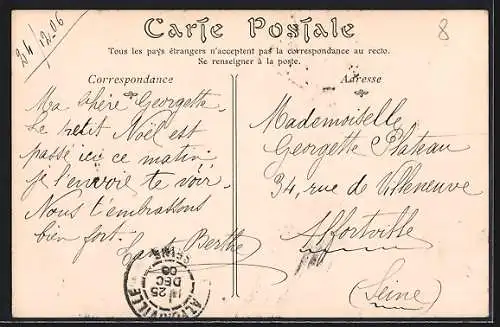 24/12.06
8
Carte Postale
Tous les pays étrangers n'acceptent pas la correspondance au recto.
Se renseigner à la poste.
Correspondance
Ma chère Georgette
Le petit Noël est
passé ici ce matin
je l'envoie te voir.
Nous t'embrassons
bien fort.
Berthe
Adresse
Mademoiselle
Georgette Plateau
34, rue de Villeneuve
Alfortville
(Seine)
ALFORTVILLE
25
DEC
06
SEINE